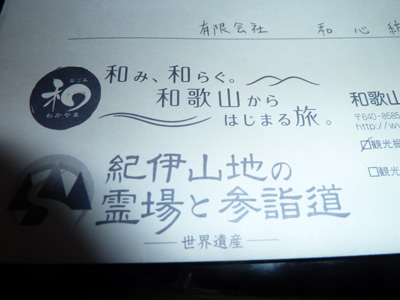 有限会社 和心
なごみ
和
わかやま
和み、和らぐ。
和歌山から
はじまる旅。
和歌山
〒640-8585
http://w
観光振
紀伊山地の
霊場と参詣道
世界遺産
□観光